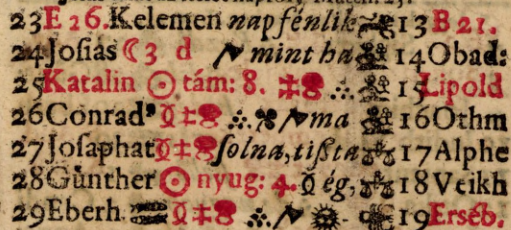 23 E 26. Kelemen napfénlik 13 B 21.
24 Joſias ☾3 d mint ha 14 Obad:
25 Katalin ☉ tám: 8. 15 Lipold
26 Conrad' ma 16 Othm
27 Joſaphat ſolna, tißta 17 Alphe
28 Günther ☉ nyug: 4. ég, 18 Veikh
29 Eberh. 19 Erséb.